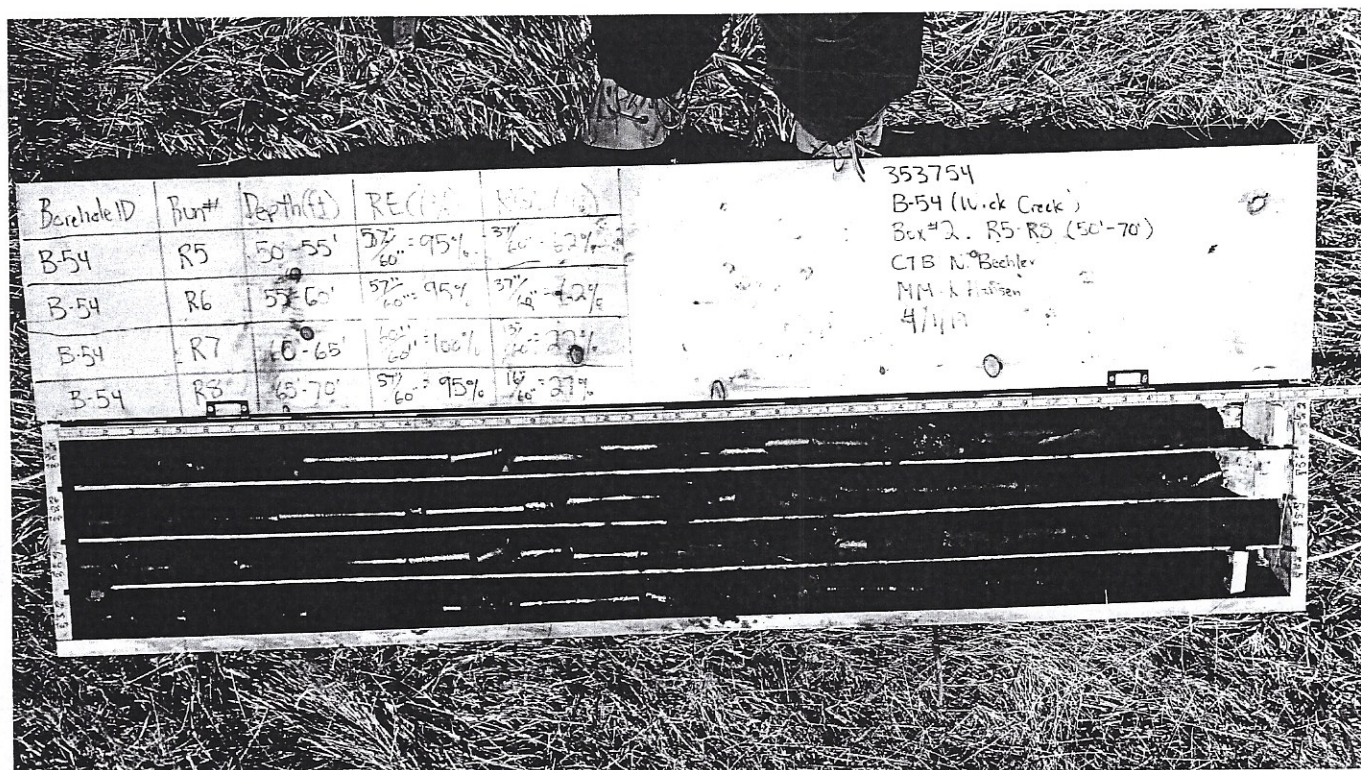 Borehole ID Run# Depth(ft) REC
B-54 R5 50'-55' 57"/60" = 95% 37"/60" = 62%
B-54 R6 55'-60' 57"/60" = 95% 37"/60" = 62%
B-54 R7 60'-65' 60"/60" = 100%
B-54 R8 65'-70' 57"/60" = 95% 16"/60" = 27%
353754
B-54 (Wick Creek)
Box #2. R5-R8 (50'-70')
CTB N. Bechler
MM-K